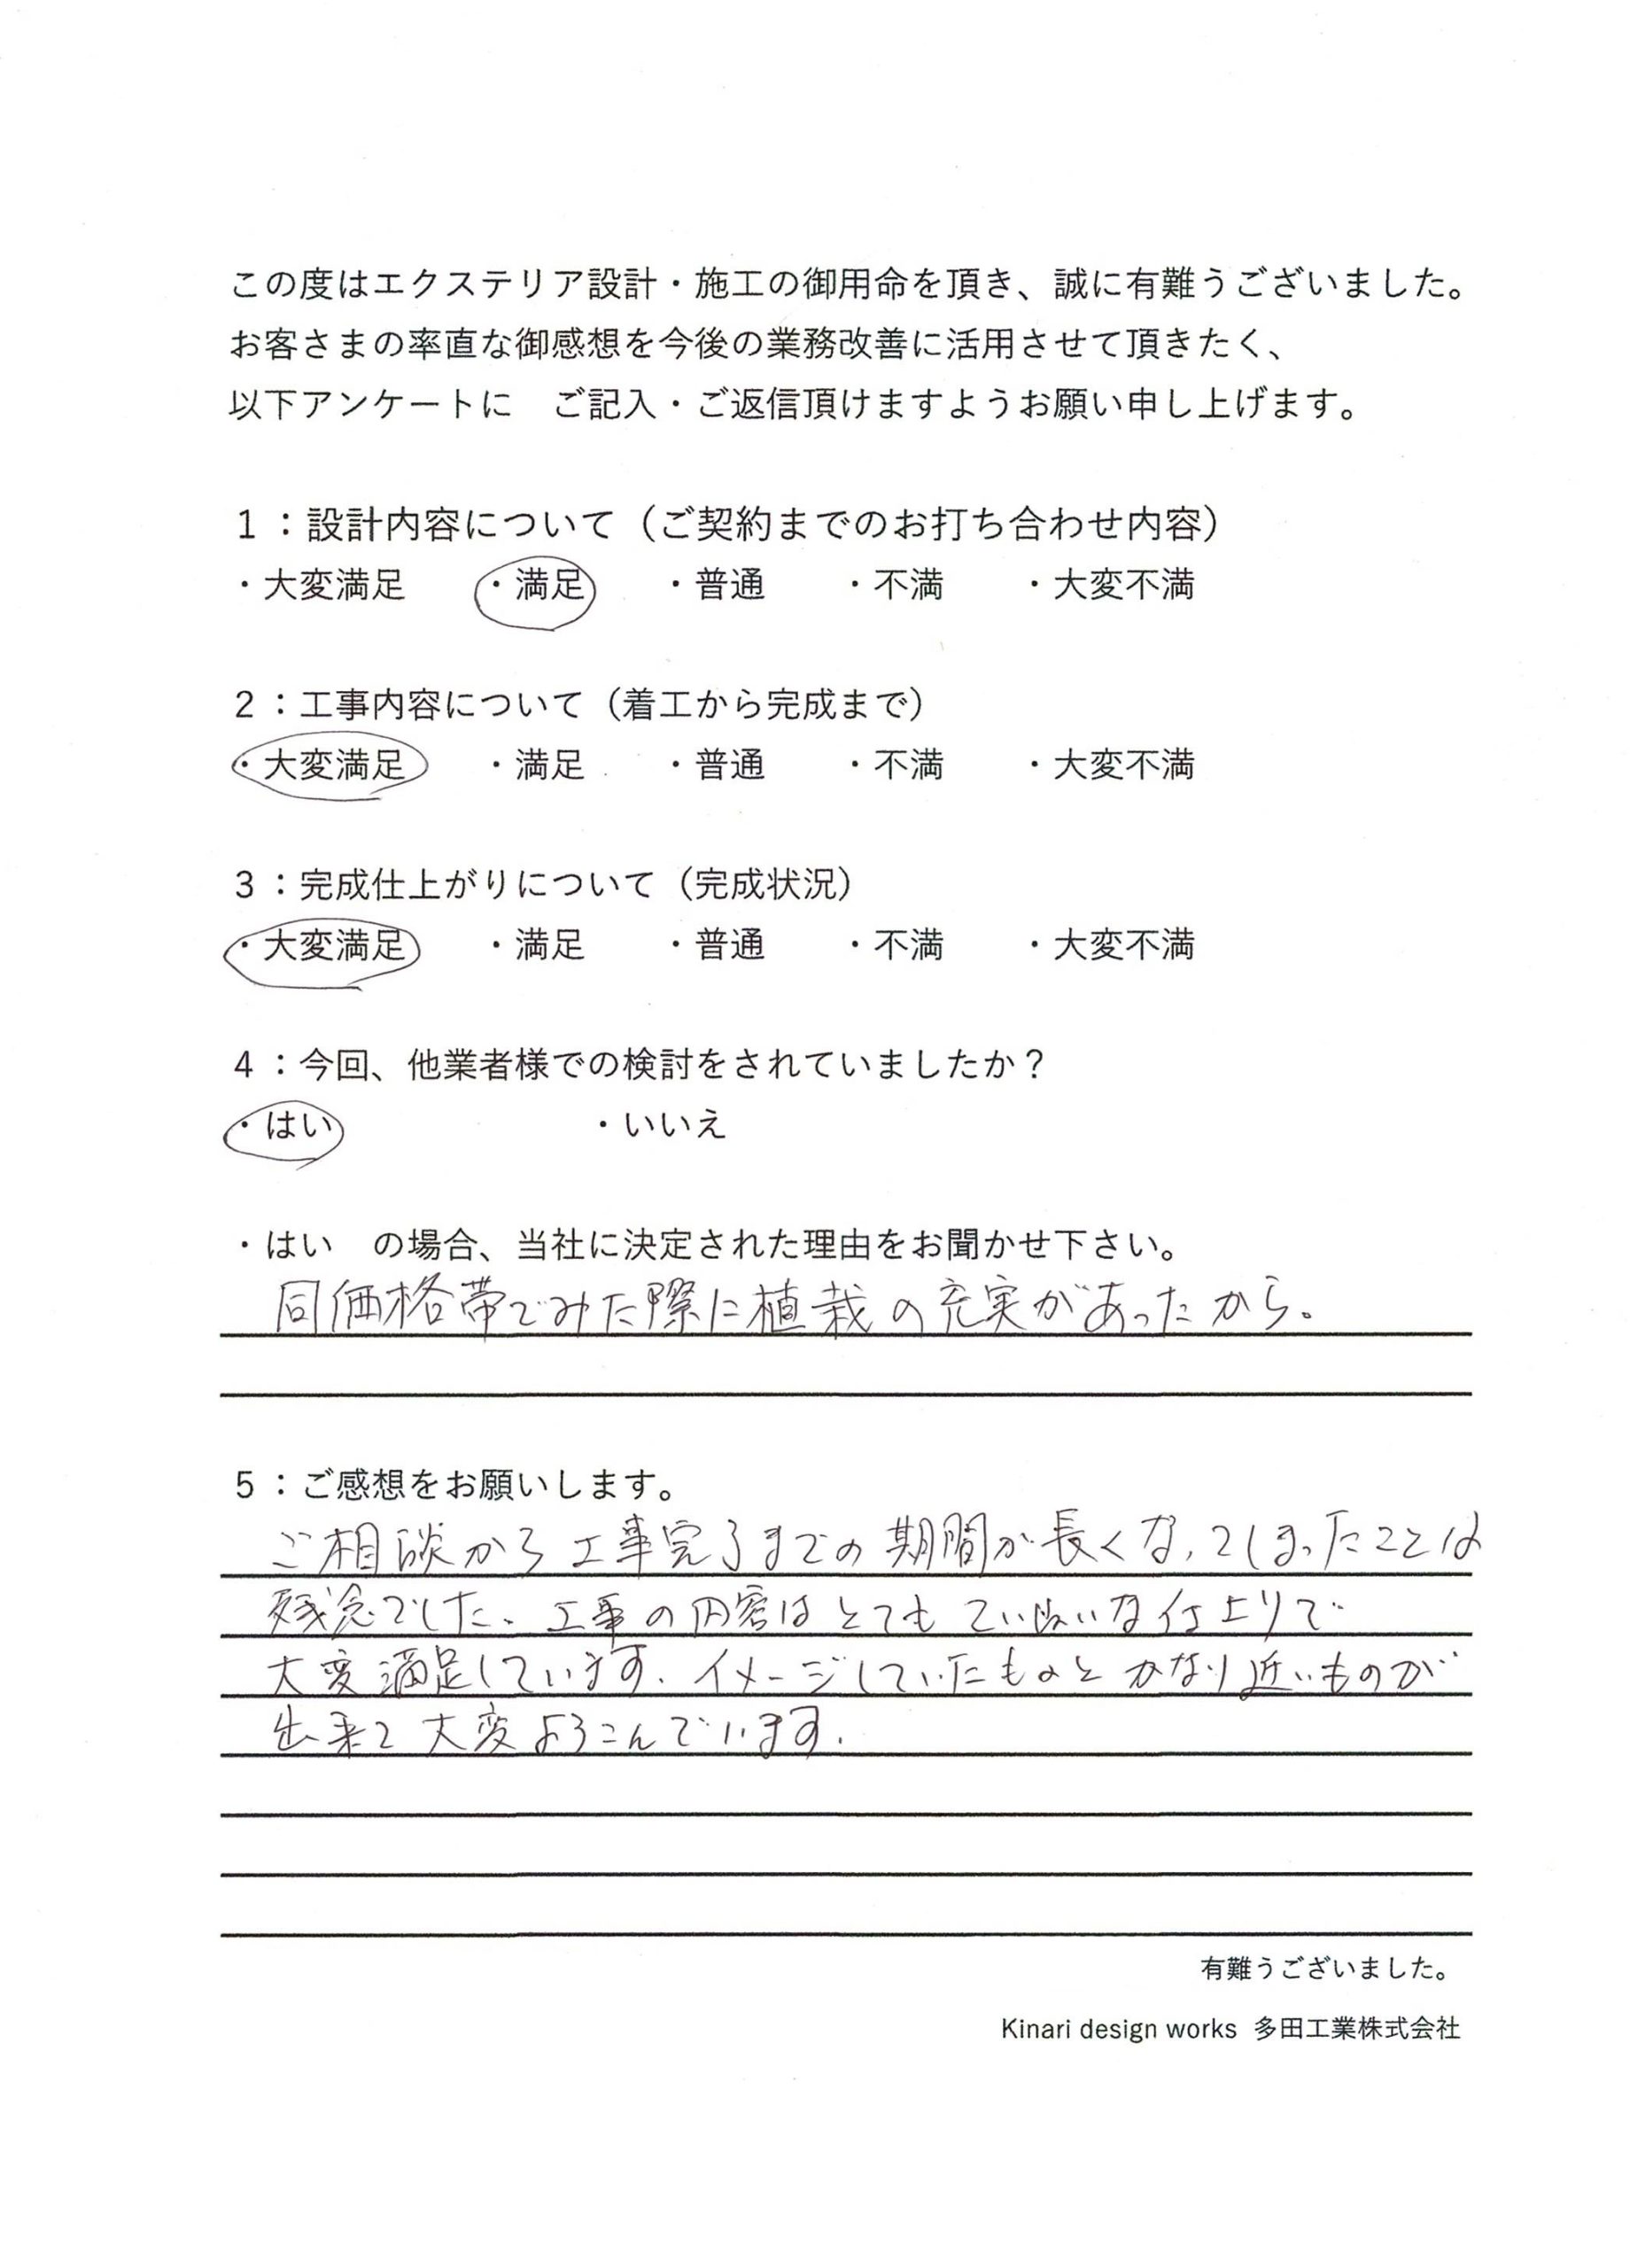 この度はエクステリア設計・施工の御用命を頂き、誠に有難うございました。
お客さまの率直な御感想を今後の業務改善に活用させて頂きたく、
以下アンケートに　ご記入・ご返信頂けますようお願い申し上げます。
１：設計内容について（ご契約までのお打ち合わせ内容）
・大変満足　・満足　・普通　・不満　・大変不満
２：工事内容について（着工から完成まで）
・大変満足　・満足　・普通　・不満　・大変不満
３：完成仕上がりについて（完成状況）
・大変満足　・満足　・普通　・不満　・大変不満
４：今回、他業者様での検討をされていましたか？
・はい　・いいえ
・はい　の場合、当社に決定された理由をお聞かせ下さい。
同価格帯でみた際に植栽の充実があったから。
５：ご感想をお願いします。
ご相談から工事完了までの期間が長くなってしまったことは
残念でした。工事の内容はとてもていねいな仕上りで
大変満足しています。イメージしていたものとかなり近いものが
出来て大変よろこんでいます。
有難うございました。
Kinari design works 多田工業株式会社